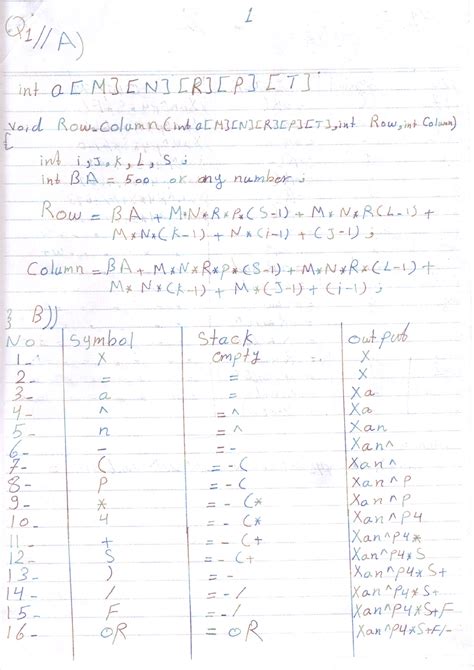 1
Q1// A)
int a[M][N][R][P][T]
void Row-Column(int a[M][N][R][P][T], int Row, int Column)
{
int i, J, K, L, S ;
int BA = 500 or any number ;
Row = BA + M*N*R*P*(S-1) + M*N*R(L-1) +
M*N*(K-1) + N*(i-1) + (J-1) ;
Column = BA + M*N*R*P*(S-1) + M*N*R*(L-1) +
M*N*(K-1) + M*(J-1) + (i-1) ;
} B))
No Symbol Stack output
1- X empty X
2- = = X
3- a = Xa
4- ^ =^ Xa
5- n =^ Xan
6- - =- Xan^
7- ( =-( Xan^
8- P =-( Xan^P
9- * =-(* Xan^P
10- 4 =-(* Xan^P4
11- + =-(+ Xan^P4*
12- S =-(+ Xan^P4*S
13- ) =- Xan^P4*S+
14- / =-/ Xan^P4*S+
15- F =-/ Xan^P4*S+F
16- oR = oR Xan^P4*S+F/-